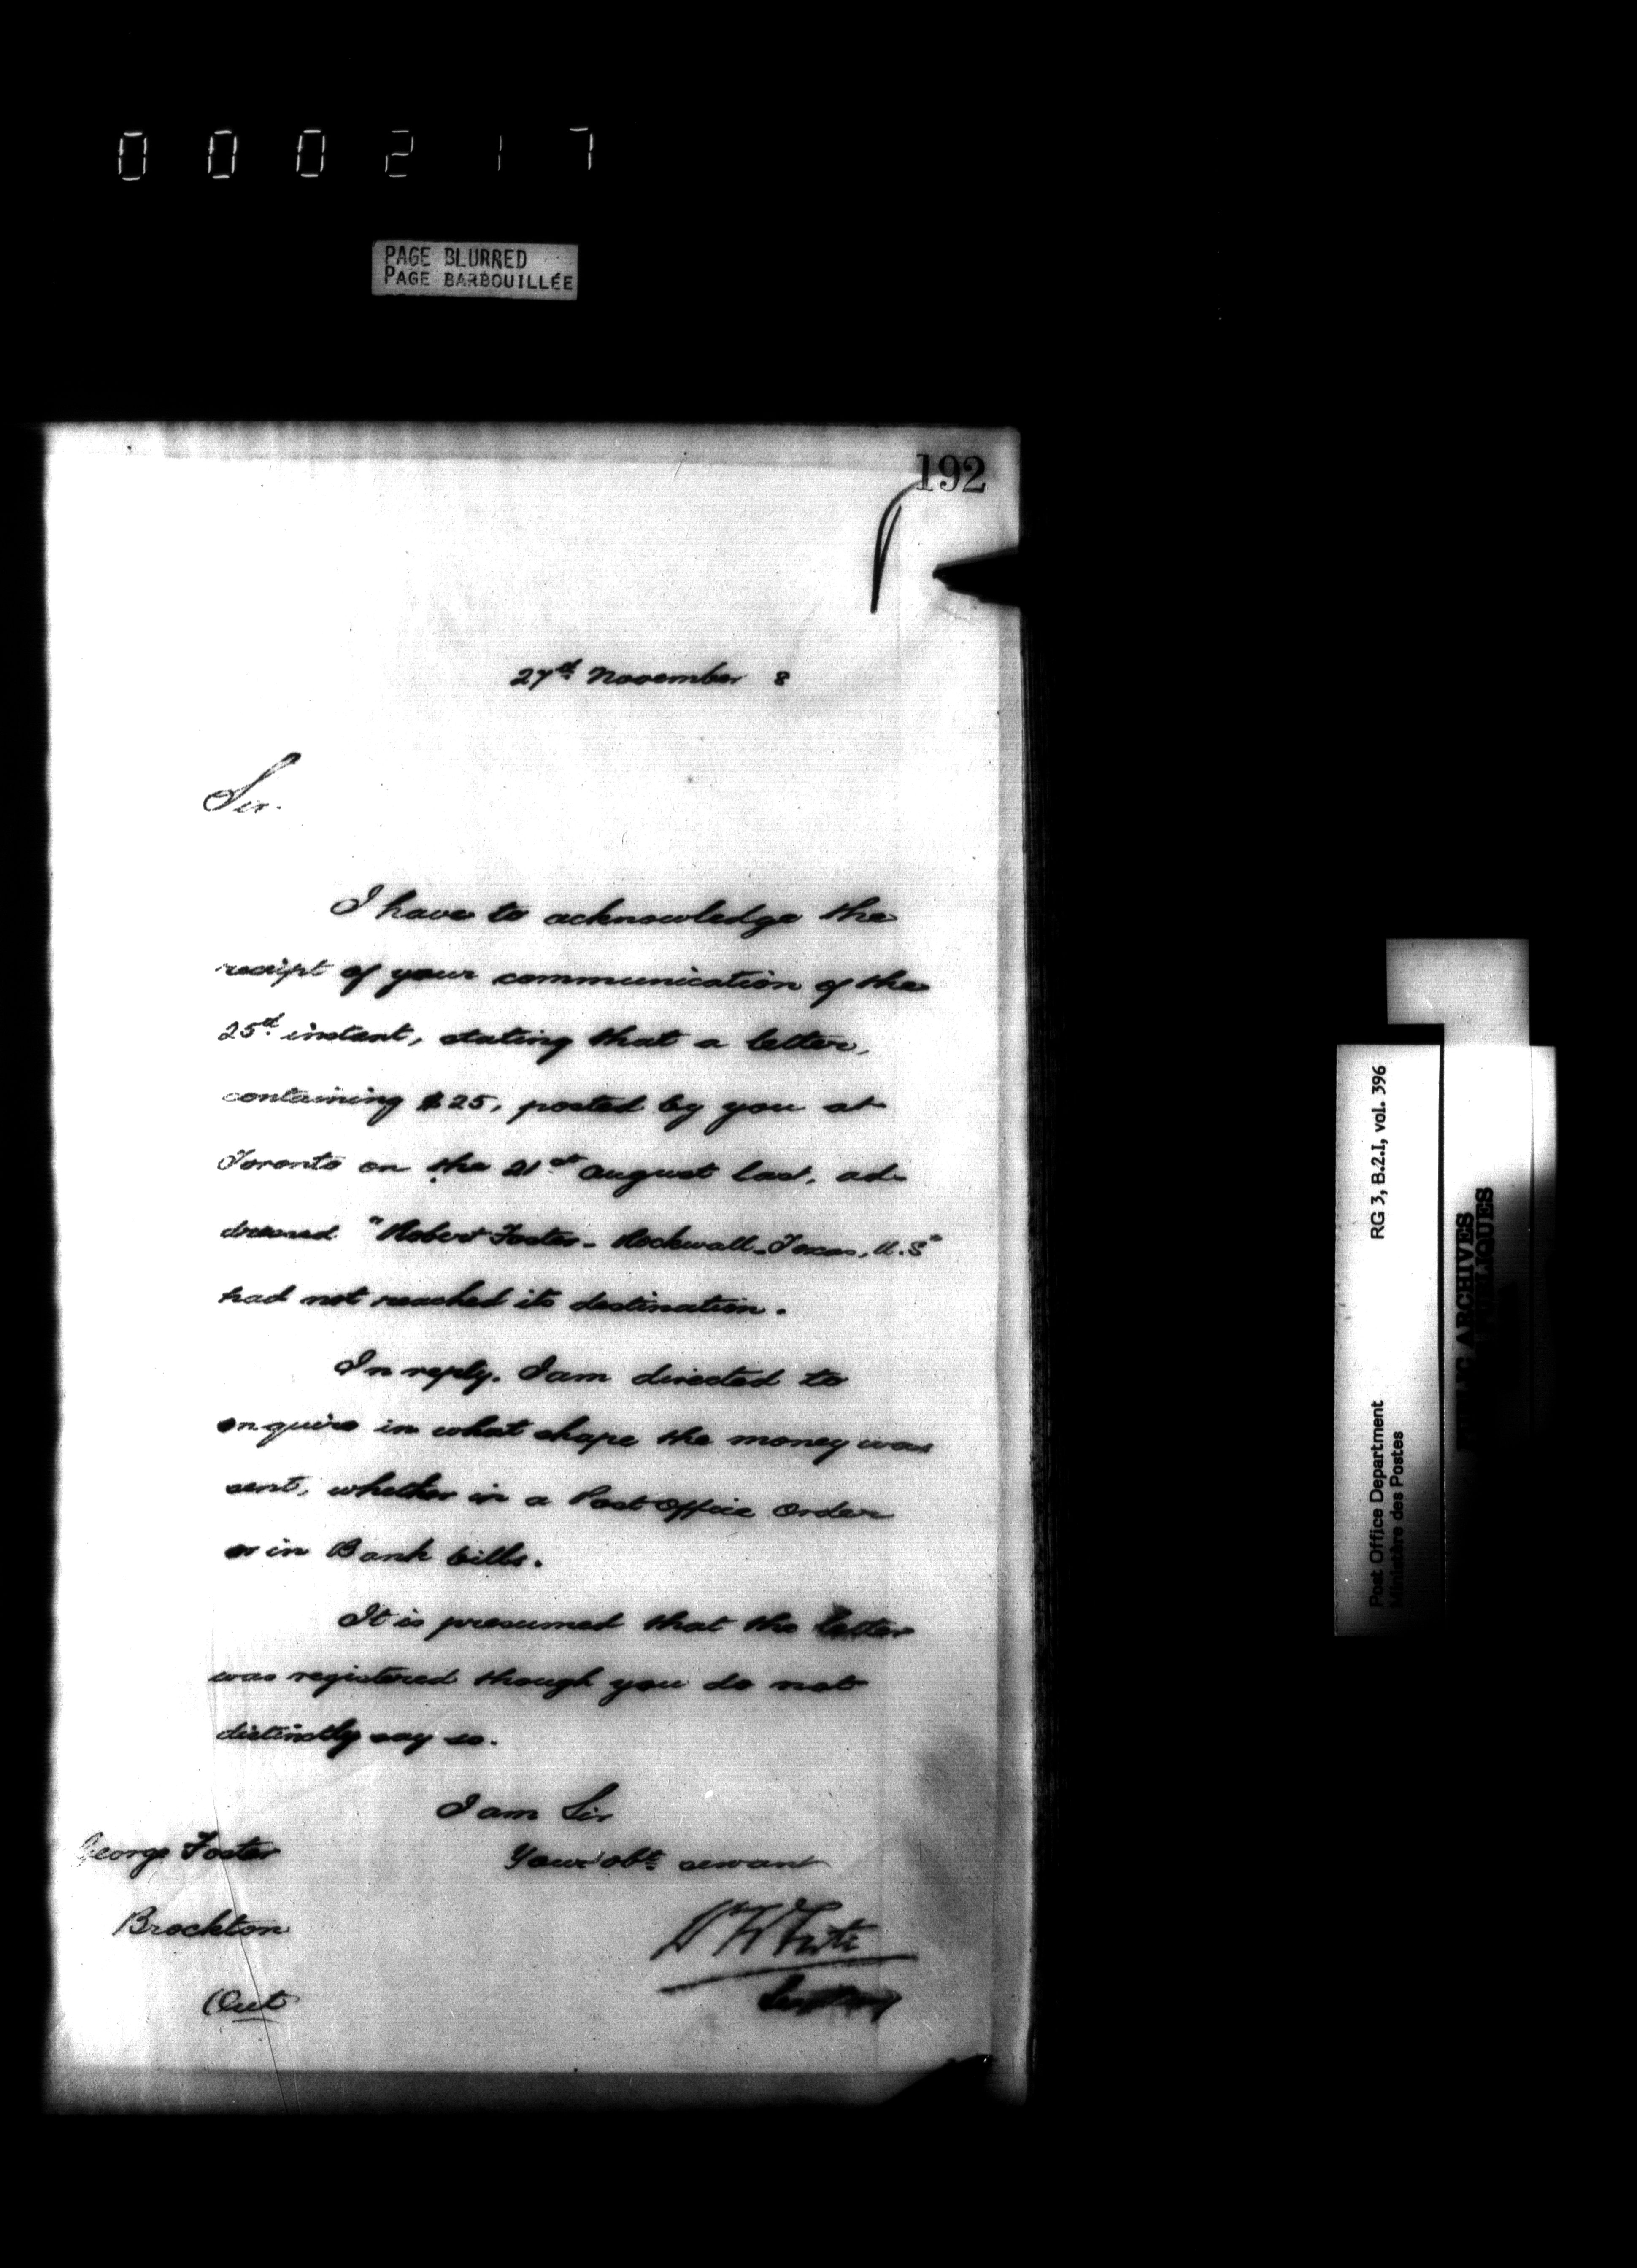 000217
PAGE BLURRED
PAGE BARBOUILLÉE
192
27th November 8
Sir.
I have to acknowledge the
receipt of your communication of the
25th instant, stating that a letter,
containing $25, posted by you at
Toronto on the 21st August last, ad-
dressed "Robert Foster - Rockwall, Texas, U.S"
had not reached its destination.
In reply, I am directed to
enquire in what shape the money was
sent, whether in a Post Office Order
or in Bank bills.
It is presumed that the letter
was registered though you do not
distinctly say so.
I am Sir
Your obt servant
George Foster
Brockton
Ont
W White
RG 3, B.2.I, vol. 396
Post Office Department
Ministère des Postes
ARCHIVES